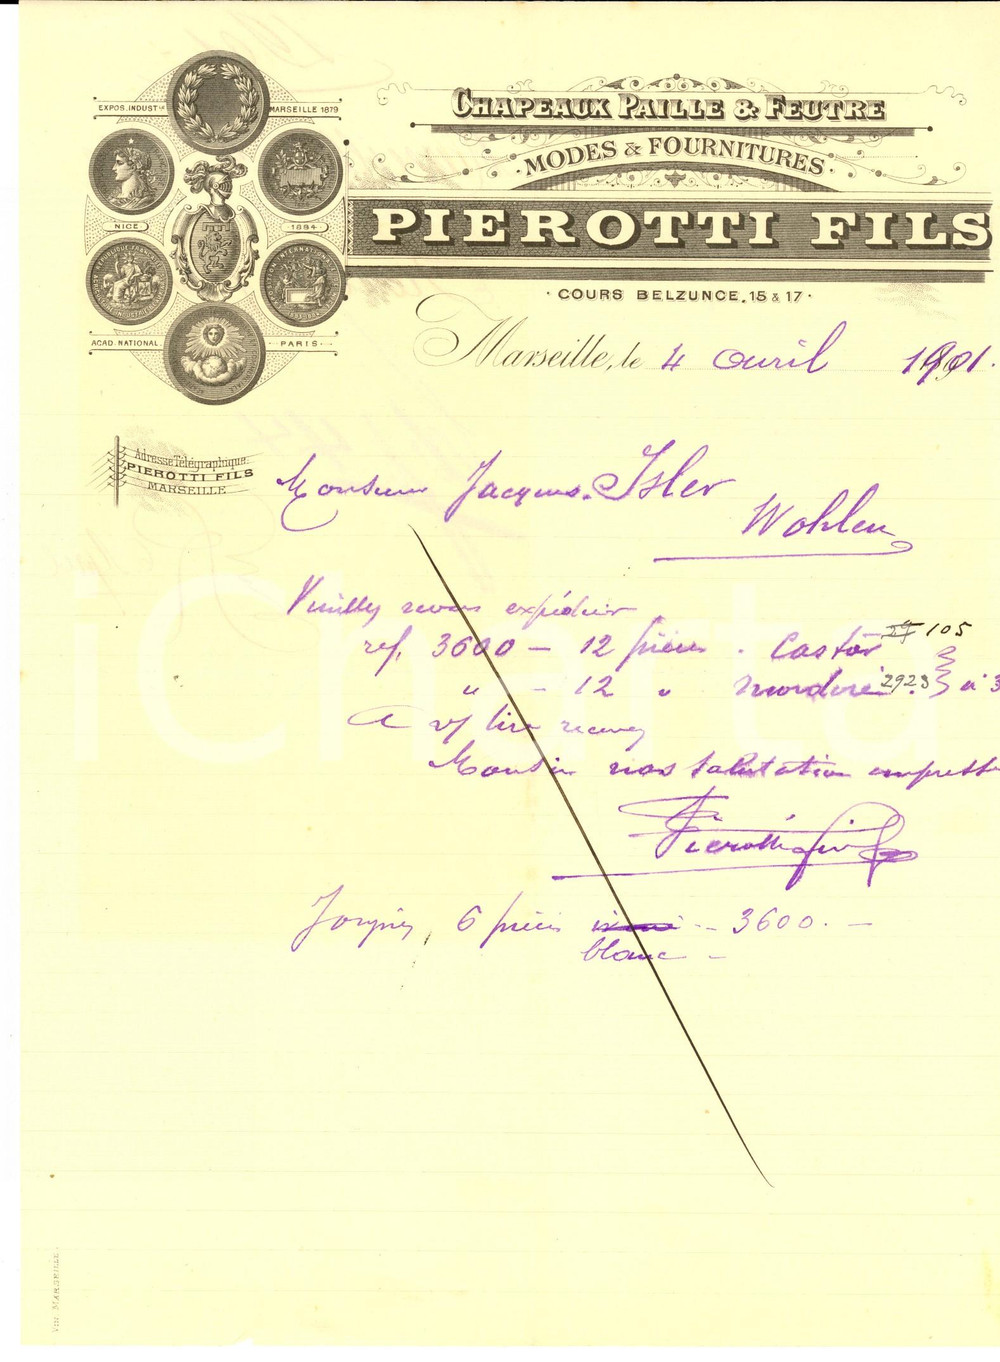 CHAPEAUX PAILLE & FEUTRE
· MODES & FOURNITURES ·
PIEROTTI FILS
· COURS BELZUNCE, 15 & 17 ·
EXPOS. INDUST^LE MARSEILLE 1879
NICE 1884
ACAD. NATIONAL. PARIS
Marseille, le 4 avril 1901.
Adresse Télégraphique:
PIEROTTI FILS
MARSEILLE
Monsieur Jacques Isler
Wohlen
Veuillez nous expédier
ref. 3600 – 12 pièces . Castor 105
" – 12 " mordoré 2923 à 3
A v/ lire recevez
Monsieur nos salutation empress
Pierotti fils
Joignez, 6 pièces -- 3600. —
blanc –
iCharta